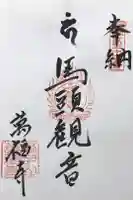 奉納
馬頭観音
萬福寺